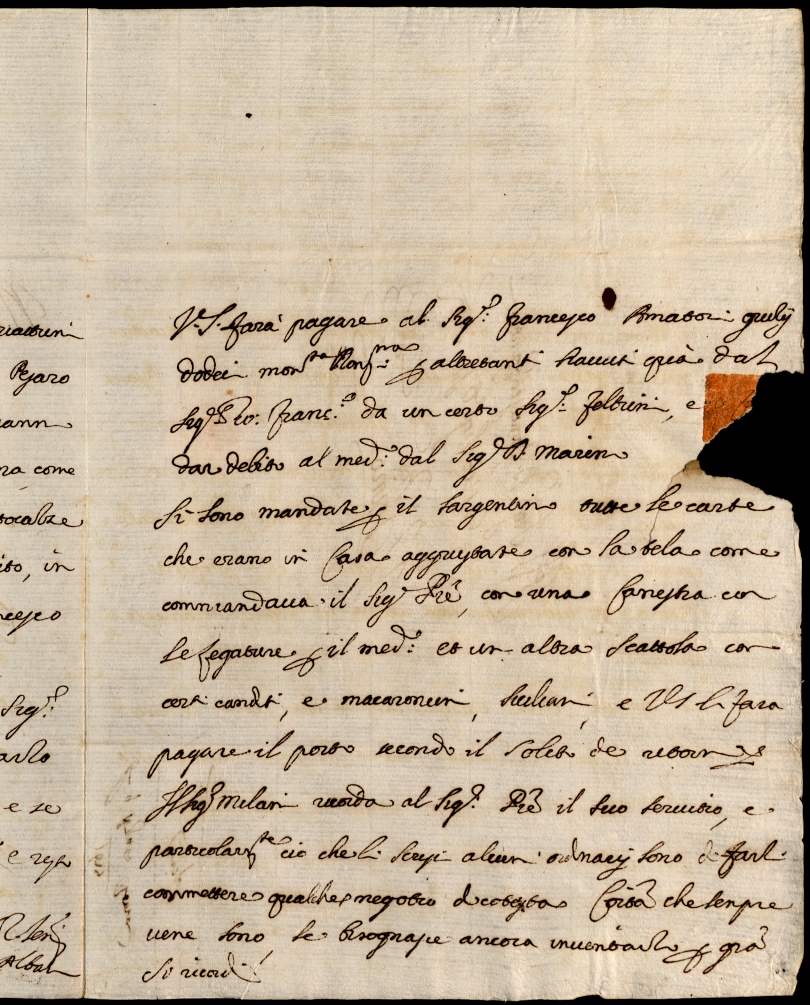 V. S. farà pagare al Sigr: Francesco Amatori giulij
dodeci monta Romna: p altretanti havuti quà dal
Sigr Gio: Franc:o da un certo Sigr: Feltrini, e
dar debito al med: dal Sigr Marin
Si sono mandate p il Sargentino tutte le carte
che erano in Casa aggiustate con la tela come
commandava il Sigr Prē, con una Canestra con
le legature p il med: et un altra scattola con
certi canditi, e macaroncini, siciliani, e VS li fara
pagare il porto secondo il solito de
Il Sigr Milani ricorda al Sigr: Prē il suo servitio, e
particolarmte ciò che li scrissi alcuni ordinarij sono di farli
commettere qualche negotio di cotesta Corte che sempre
vene sono, se bisognasse ancora inventarlo p
si ricordi
Pesaro
come
in
Sigr:
e se